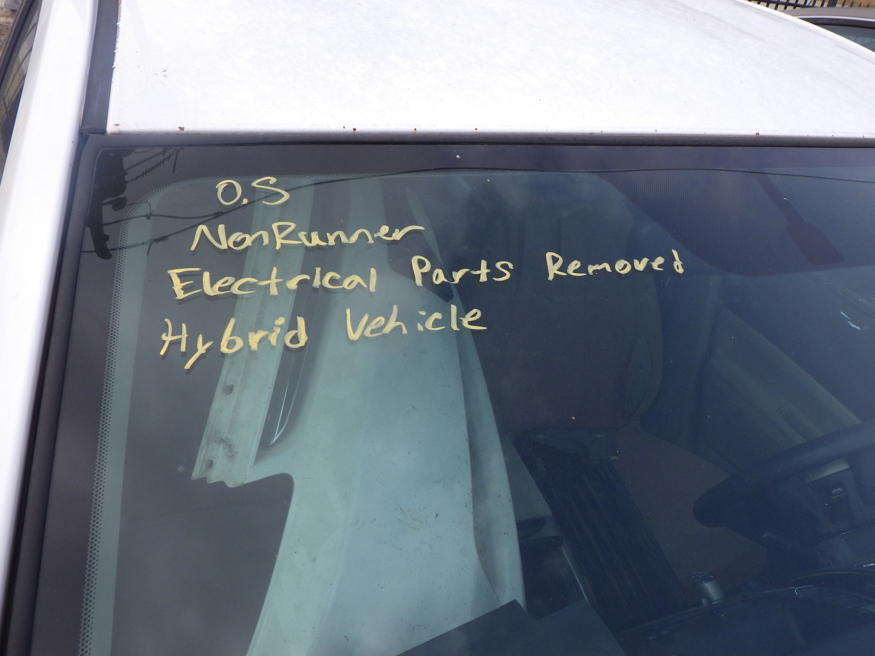 O.S
NonRunner
Electrical Parts Removed
Hybrid Vehicle